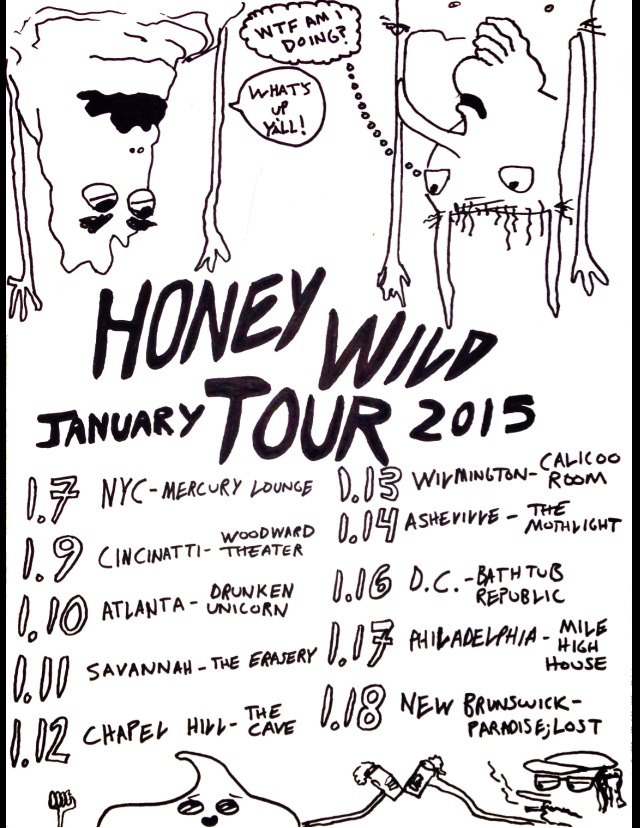 WTF AM I
DOING?
WHAT'S
UP
Y'ALL!
HONEY WILD
JANUARY TOUR 2015
1.7 NYC - MERCURY LOUNGE
1.9 CINCINATTI - WOODWARD
THEATER
1.10 ATLANTA - DRUNKEN
UNICORN
1.11 SAVANNAH - THE ERASERY
1.12 CHAPEL HILL - THE
CAVE
1.13 WILMINGTON - CALICOO
ROOM
1.14 ASHEVILLE - THE
MOTHLIGHT
1.16 D.C. - BATHTUB
REPUBLIC
1.17 PHILADELPHIA - MILE
HIGH
HOUSE
1.18 NEW BRUNSWICK -
PARADISE;LOST